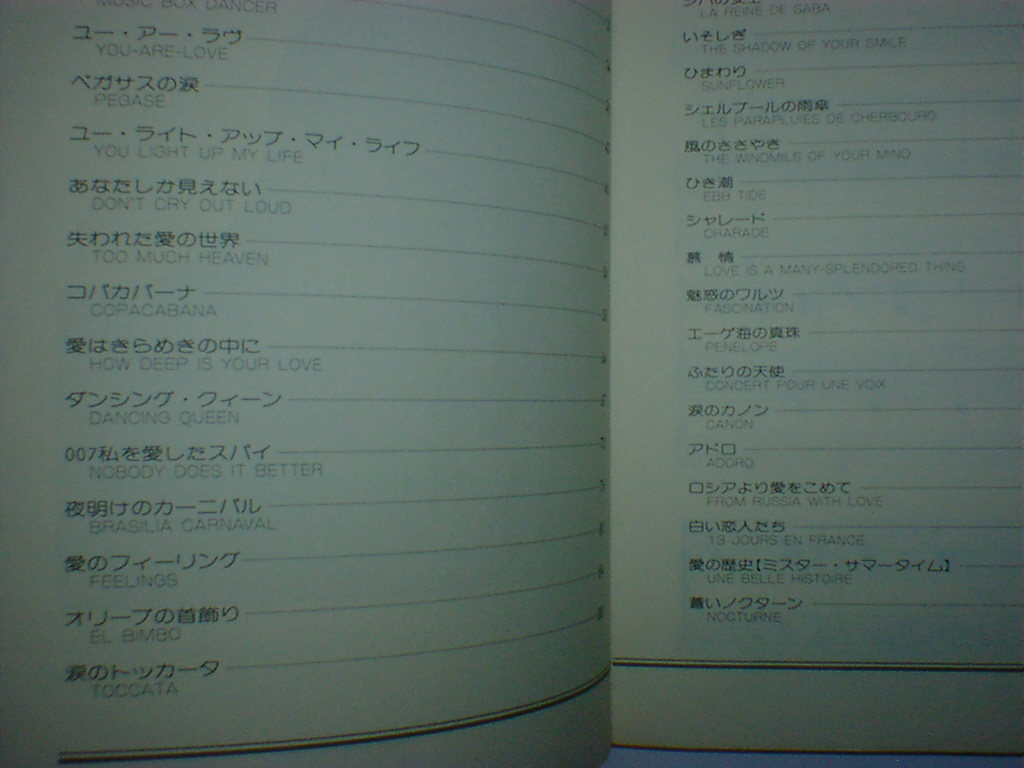 MUSIC BOX DANCER
ユー・アー・ラヴ
YOU-ARE-LOVE
ペガサスの涙
PEGASE
ユー・ライト・アップ・マイ・ライフ
YOU LIGHT UP MY LIFE
あなたしか見えない
DON'T CRY OUT LOUD
失われた愛の世界
TOO MUCH HEAVEN
コパカバーナ
COPACABANA
愛はきらめきの中に
HOW DEEP IS YOUR LOVE
ダンシング・クィーン
DANCING QUEEN
007私を愛したスパイ
NOBODY DOES IT BETTER
夜明けのカーニバル
BRASILIA CARNAVAL
愛のフィーリング
FEELINGS
オリーブの首飾り
EL BIMBO
涙のトッカータ
TOCCATA
LA REINE DE SABA
いそしぎ
THE SHADOW OF YOUR SMILE
ひまわり
SUNFLOWER
シェルブールの雨傘
LES PARAPLUIES DE CHERBOURG
風のささやき
THE WINDMILS OF YOUR MIND
ひき潮
EBB TIDE
シャレード
CHARADE
慕　情
LOVE IS A MANY-SPLENDORED THING
魅惑のワルツ
FASCINATION
エーゲ海の真珠
PENELOPE
ふたりの天使
CONCERT POUR UNE VOIX
涙のカノン
CANON
アドロ
ADORO
ロシアより愛をこめて
FROM RUSSIA WITH LOVE
白い恋人たち
13 JOURS EN FRANCE
愛の歴史【ミスター・サマータイム】
UNE BELLE HISTOIRE
蒼いノクターン
NOCTURNE